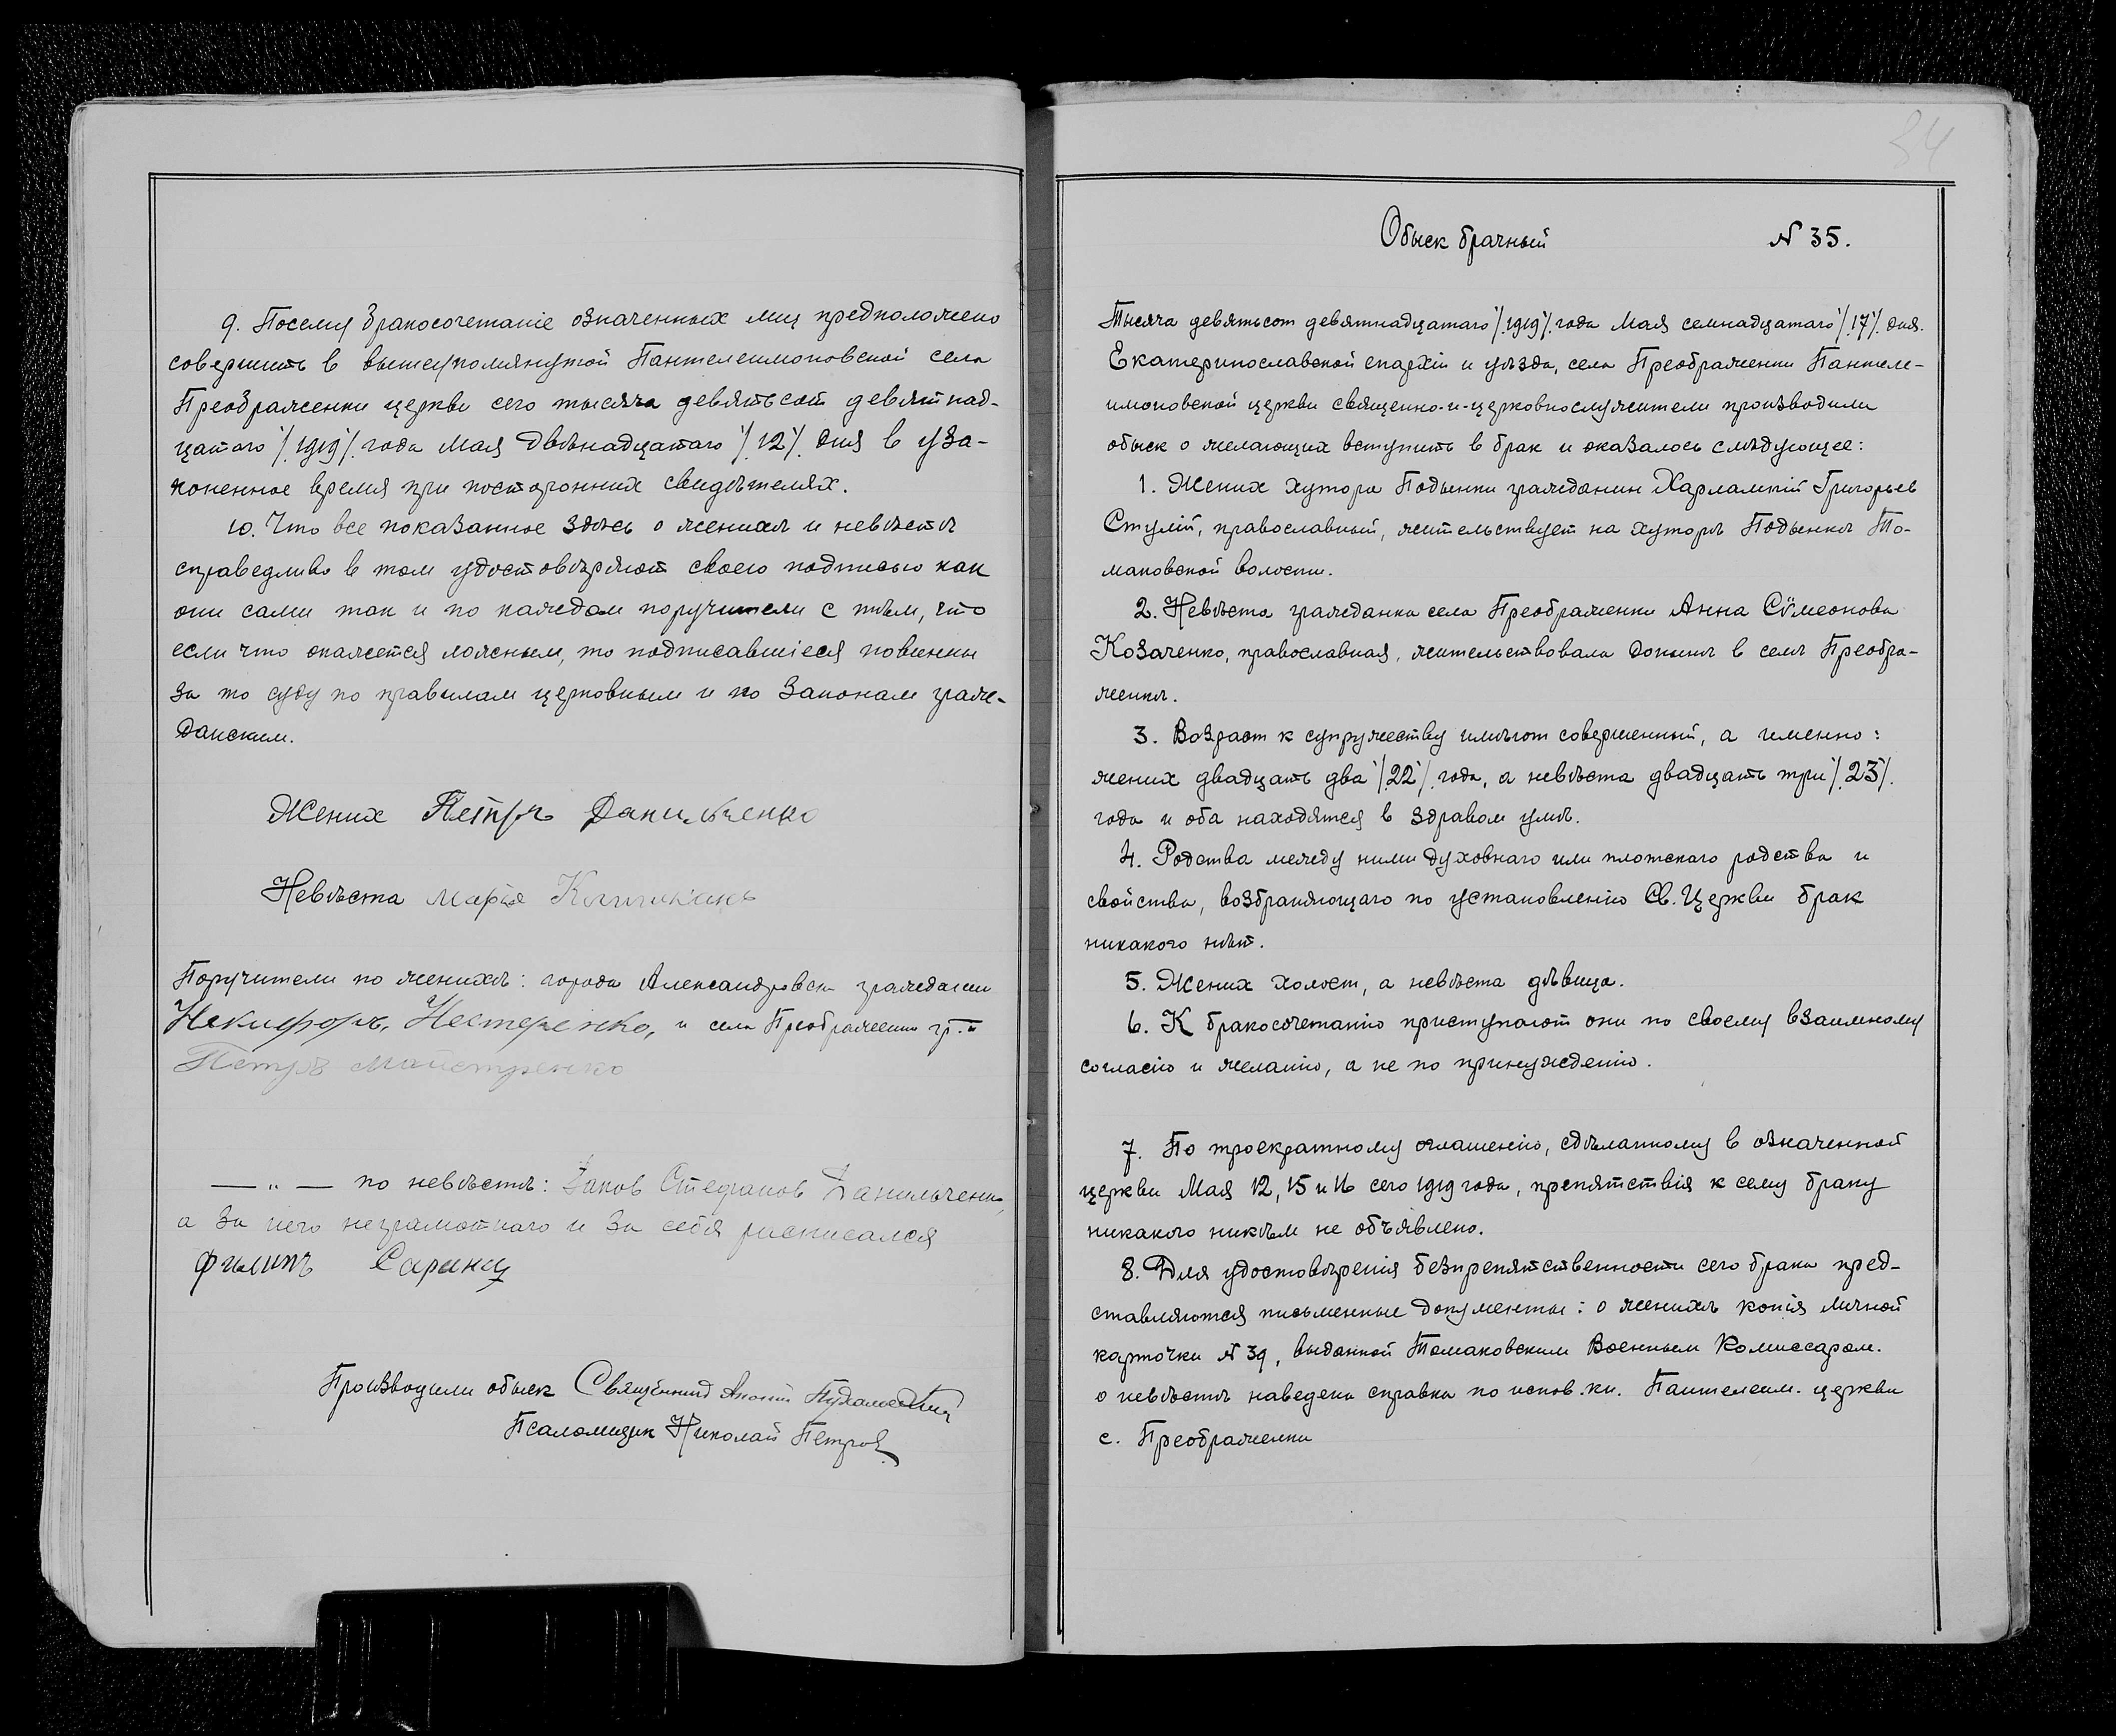 9. Посему бракосочетаніе означенных лиц предположено
совершить в вышеупомянутой Пантелеимоновской села
Преображенки церкви сего тысяча девятьсот девятнад-
цатаго /.1919/. года Мая двѣнадцатаго /.12/. дня в уза-
коненное время при посторонних свидѣтелях.
10. Что все показанное здѣсь о женихѣ и невѣстѣ
справедливо в том удостовѣряют своею подписью как
они сами так и по каждом поручители с тѣм, что
если что окажется ложным, то подписавшіеся повинны
за то суду по правилам церковным и по законам граж-
данским.
Жених Петръ Данильченко
Невѣста Марѳа
Поручители по женихѣ: города Александровска граждани
Никифоръ Нестеренко, и села Преображенки гр.
Петръ Майстренко
— „ — по невѣстѣ: Иаков Стефанов Данильченко,
а за него неграмотнаго и за себя расписался
Филипъ
Производили обыск Священник
Псаломщик Николай Петров
34
Обыск брачный N 35.
Тысяча девятьсот девятнадцатаго /.1919/. года Мая семнадцатаго /.17/. дня.
Екатеринославской епархіи и уѣзда, села Преображенки Пантеле-
имоновской церкви священно-и-церковнослужители производили
обыск о желающих вступить в брак и оказалось слѣдующее:
1. Жених хутора Подынки гражданин Харлампій Григорьев
Стулій, православный, жительствует на хуторѣ Подынкѣ То-
маковской волости.
2. Невѣста гражданка села Преображенки Анна Сѵмеонова
Козаченко, православная, жительствовала донынѣ в селѣ Преобра-
женкѣ.
3. Возраст к супружеству имѣют совершенный, а именно:
жених двадцать два /.22/. года, а невѣста двадцать три /.23/.
года и оба находятся в здравом умѣ.
4. Родства между ними духовнаго или плотскаго родства и
свойства, возбраняющаго по установленію Св. Церкви брак
никакого нѣт.
5. Жених холост, а невѣста дѣвица.
6. К бракосочетанію приступают они по своему взаимному
согласію и желанію, а не по принужденію.
7. По троекратному оглашенію, сдѣланному в означенной
церкви Мая 12, 15 и 16 сего 1919 года, препятствія к сему браку
никакого никѣм не объявлено.
8. Для удостовѣренія безпрепятственности сего брака пред-
ставляются письменные документы: о женихѣ копія личной
карточки N 39, выданной Томаковским Военным Комиссаром.
о невѣстѣ наведена справка по испов. кн. Пантелеим. церкви
с. Преображенки